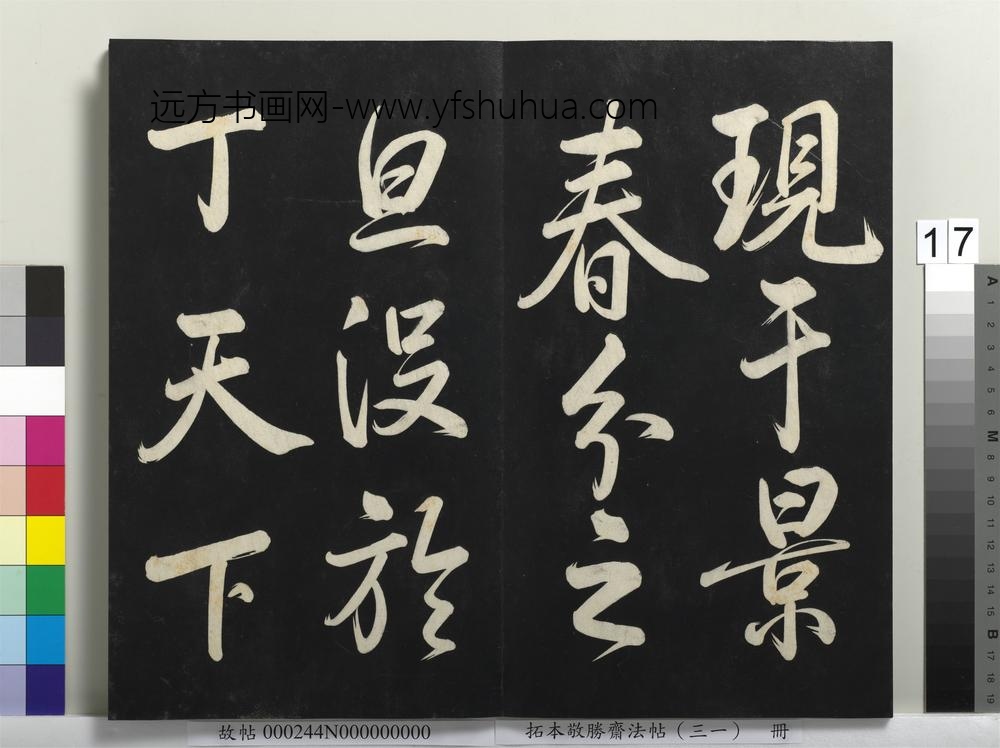 远方书画网-www.yfshuhua.com
現于景
春分之
旦没於
丁天下
17
A
1
2
3
4
5
6
M
8
9
10
11
12
13
14
15
B
17
18
19
故帖 000244N000000000
拓本敬勝齋法帖（三一） 冊